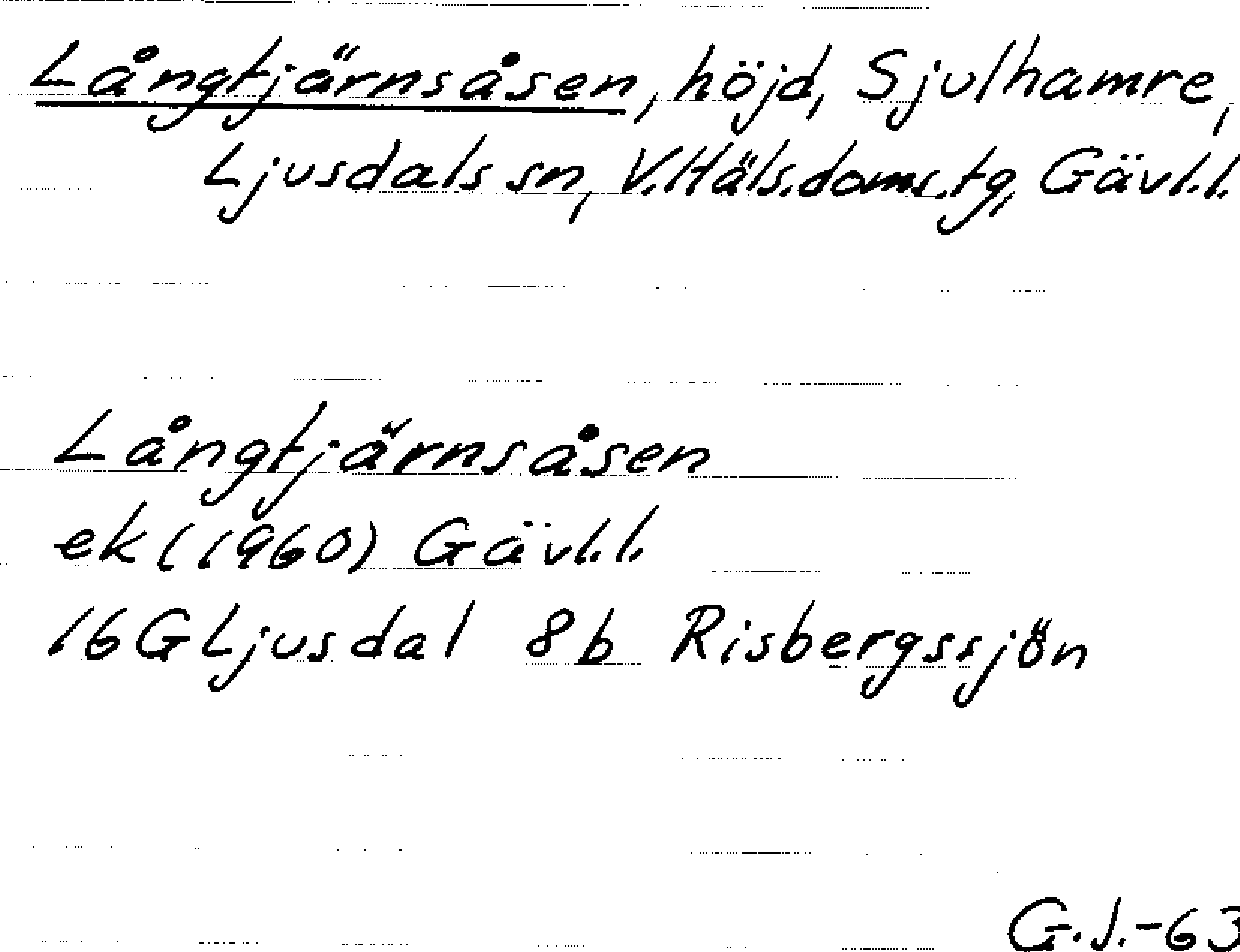 Långtjärnsåsen, höjd, Sjulhamre,
Ljusdals sn, V.Häls.doms.tg, Gävl.l.
Långtjärnsåsen
ek (1960) Gävl.l.
16G Ljusdal 8b Risbergssjön
G.J.-63